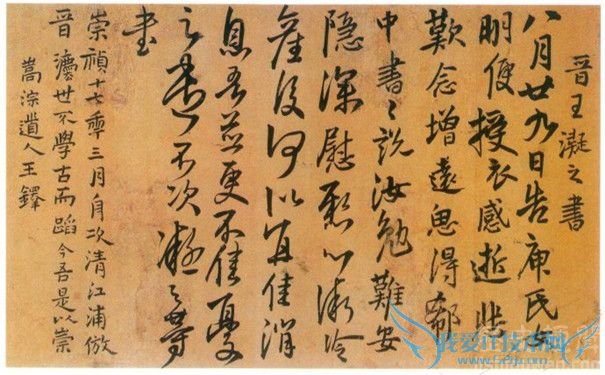 晉王凝之書
八月廿九日告庾氏女
明便授衣感逝悲
歎念增遠思得郗
中書〻說汝勉難安
隱深慰懸心衛冷
產後何似宜佳消
息吾並更不佳憂
之遣不次凝之等
書
崇禎十七年三月舟次清江浦倣
晉澆世不學古而蹈今吾是以崇
嵩淙遺人王鐸